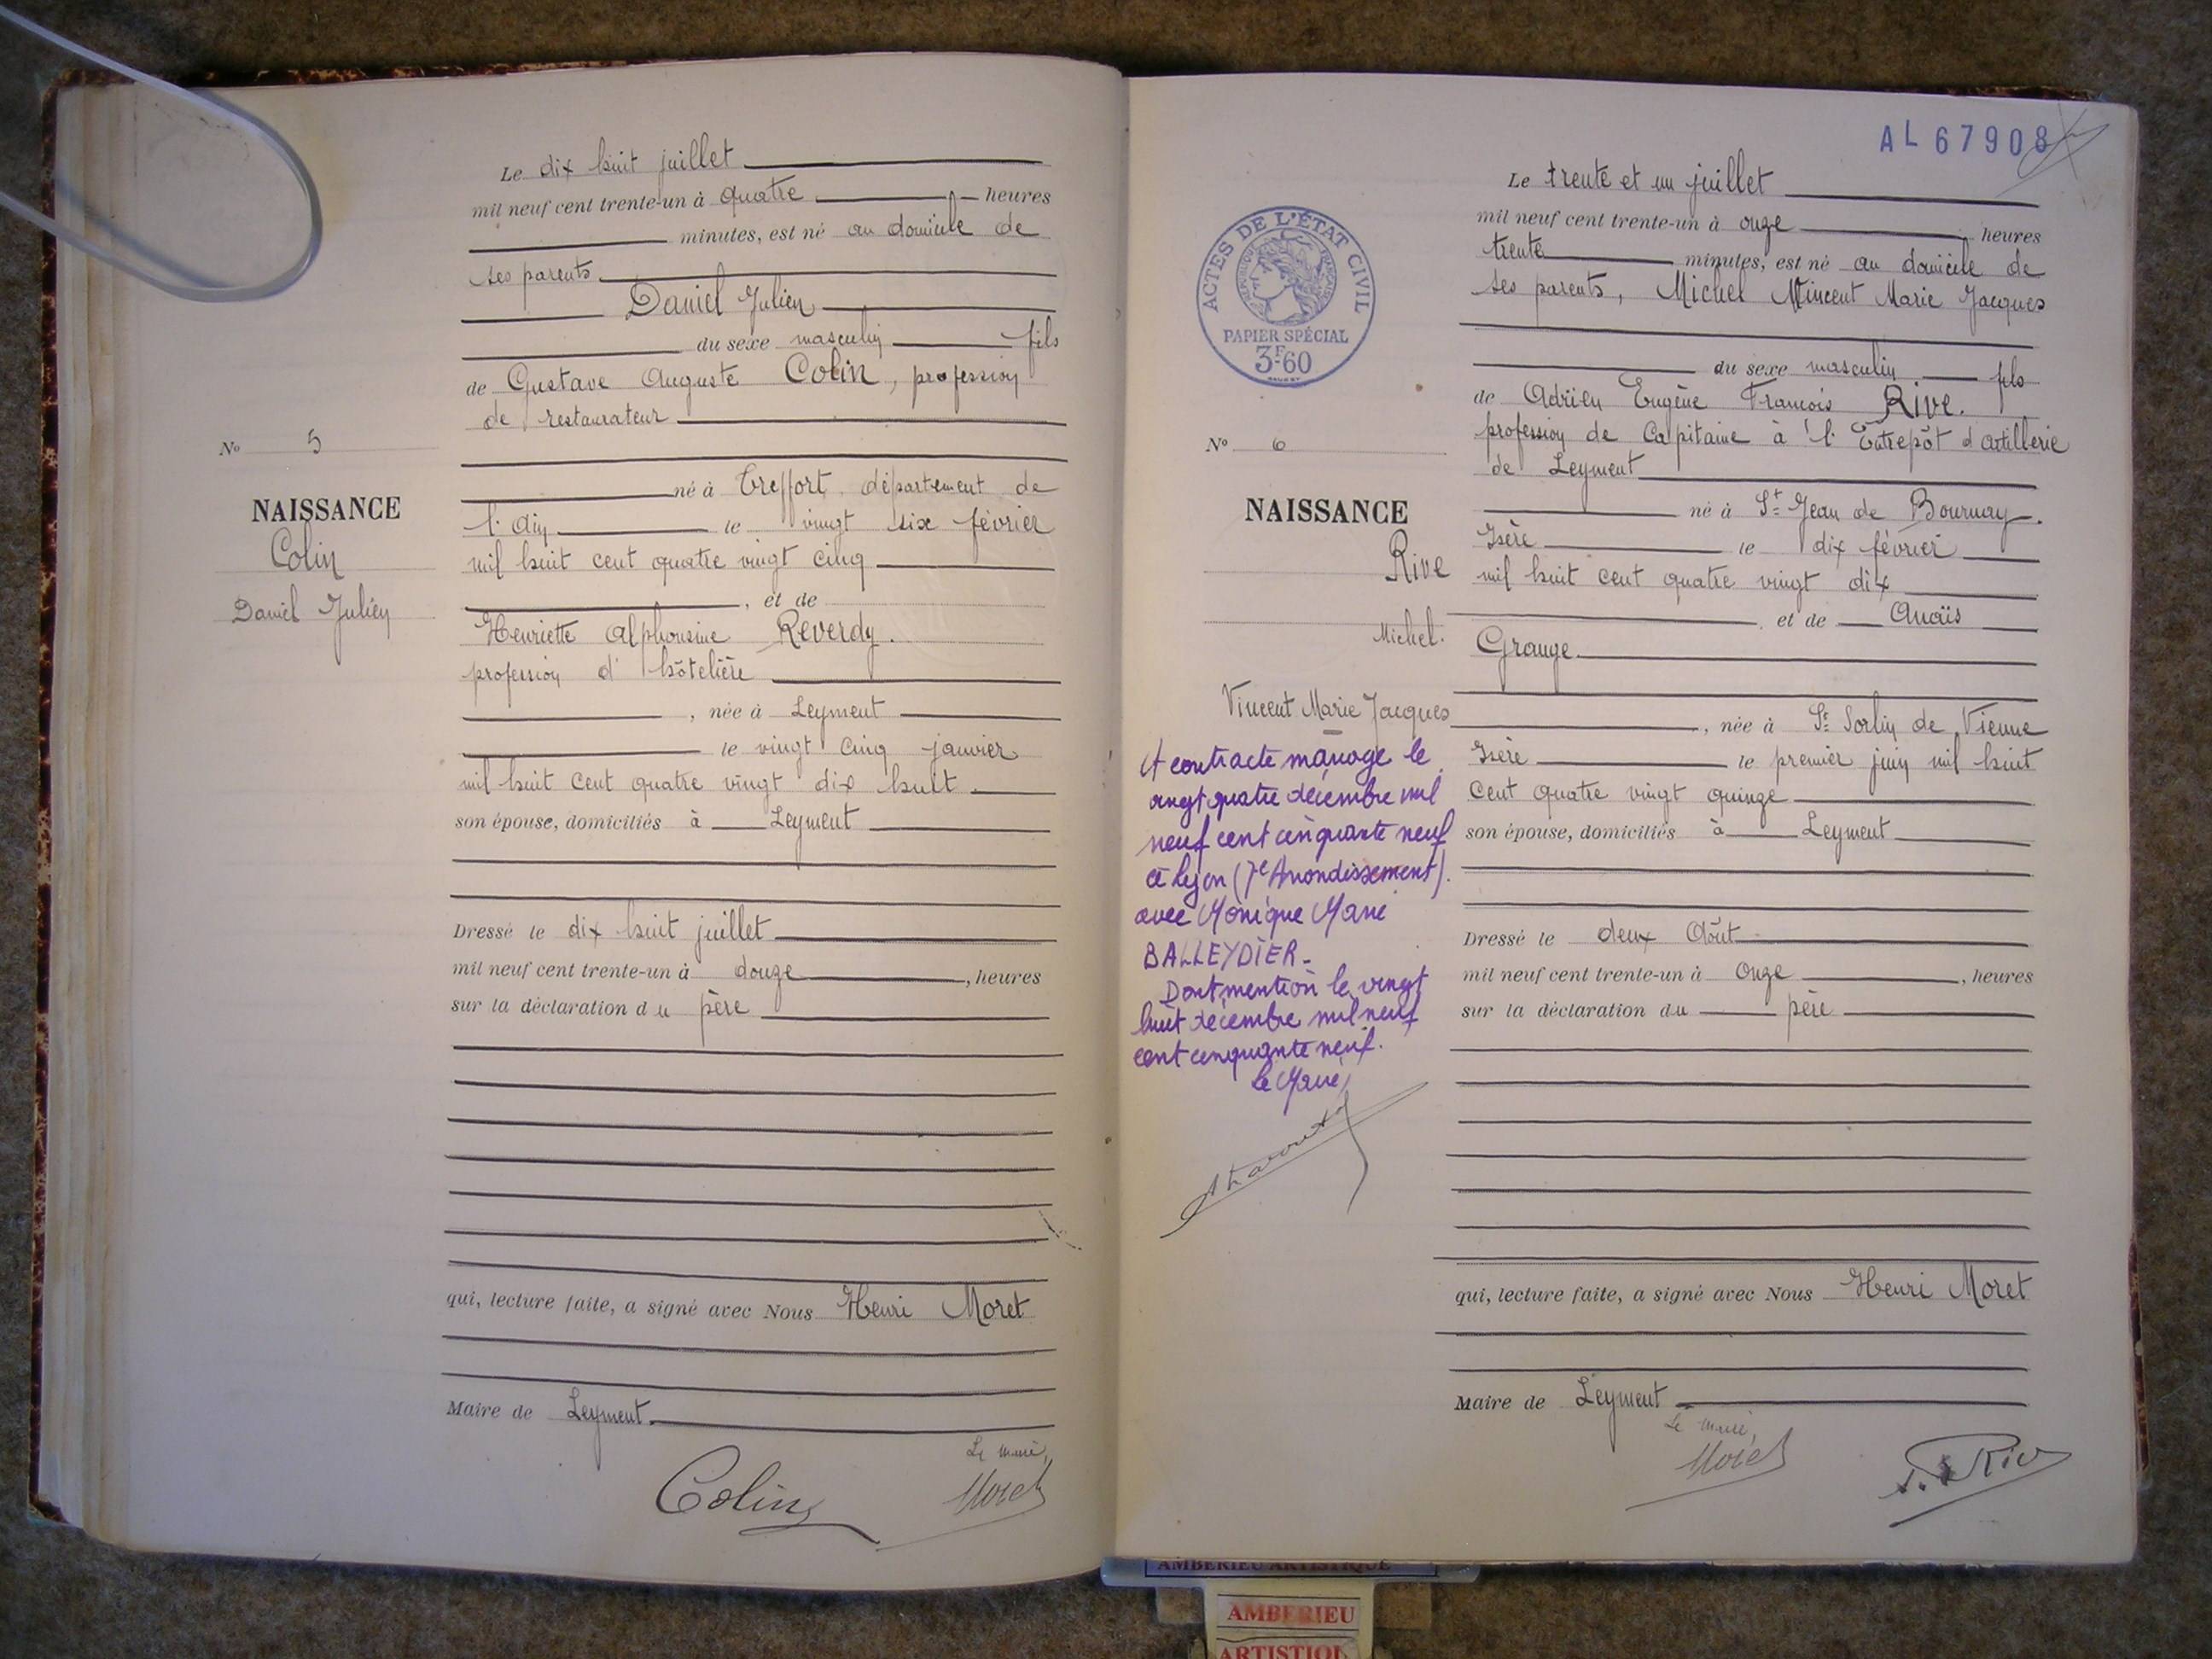 Le dix huit juillet
mil neuf cent trente-un à quatre heures
minutes, est né au domicile de
ses parents
Daniel Julien
du sexe masculin fils
de Gustave Auguste Colin, profession
de restaurateur
né à Treffort département de
l'Ain le vingt six février
mil huit cent quatre vingt cinq
, et de
Henriette Alphonsine Reverdy.
profession d'hôtelière
, née à Leyment
le vingt cinq janvier
mil huit cent quatre vingt dix huit
son épouse, domiciliés à Leyment
Dressé le dix huit juillet
mil neuf cent trente-un à douze , heures
sur la déclaration du père
qui, lecture faite, a signé avec Nous Henri Moret
Maire de Leyment.
Le maire,
Colin
Moret
No 5
NAISSANCE
Colin
Daniel Julien
AL 67908
Le trente et un juillet
mil neuf cent trente-un à onze heures
trente minutes, est né au domicile de
ses parents, Michel Vincent Marie Jacques
du sexe masculin fils
de Adrien Eugène François Rive.
profession de Capitaine à l'Entrepôt d'artillerie
de Leyment
né à St Jean de Bournay.
Isère le dix février
mil huit cent quatre vingt dix
et de Anaïs
Grange
, née à St Sorlin de Vienne
Isère le premier juin mil huit
cent quatre vingt quinze
son épouse, domiciliés à Leyment
Dressé le deux Août
mil neuf cent trente-un à onze , heures
sur la déclaration du père
qui, lecture faite, a signé avec Nous Henri Moret
Maire de Leyment
Le maire,
Moret
Rive
ACTES DE L'ÉTAT CIVIL
RÉPUBLIQUE FRANÇAISE
PAPIER SPÉCIAL
3F60
No 6
NAISSANCE
Rive
Michel.
Vincent Marie Jacques
A contracté mariage le
vingt quatre décembre mil
neuf cent cinquante neuf
à Lyon (7e Arrondissement).
avec Monique Marie
BALLEYDIER.
Dont mention le vingt
huit décembre mil neuf
cent cinquante neuf.
Le Maire,
AMBERIEU ARTISTIQUE
AMBERIEU